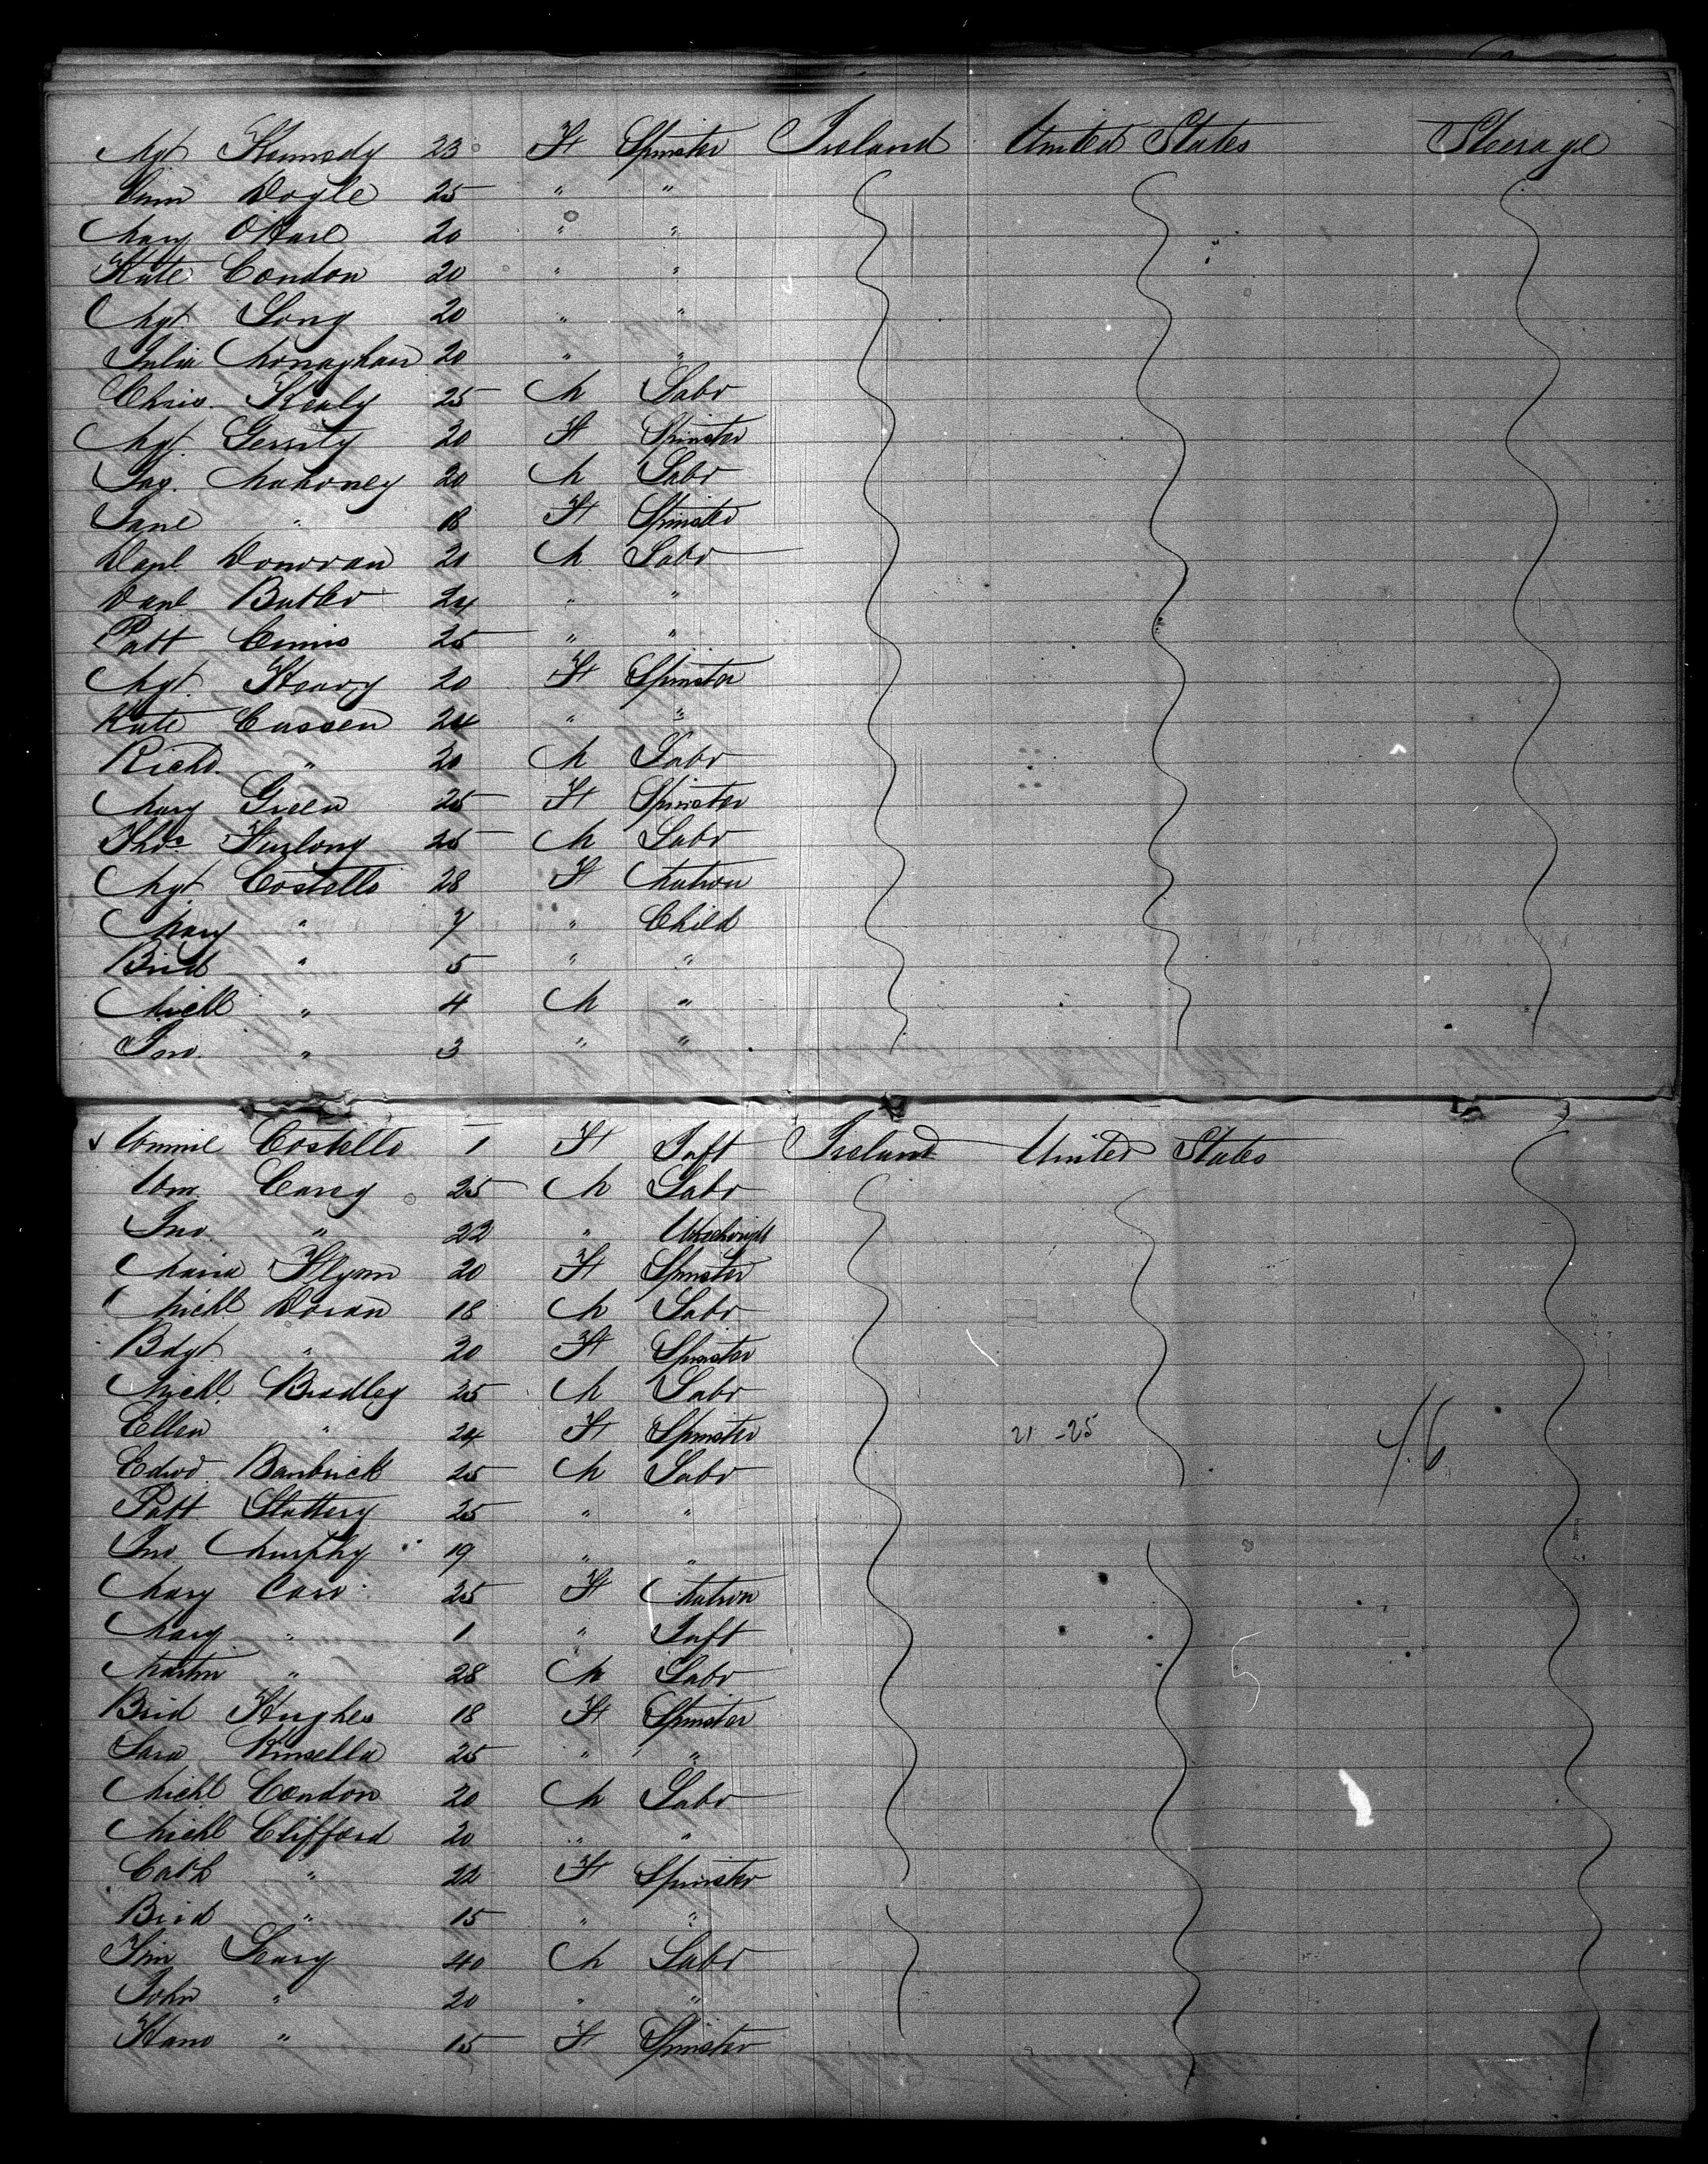 Mgt Kennedy 23 F Spinster Ireland United States Steerage
Ann Doyle 25 " "
Mary O'Hare 20 " "
Kate Condon 20 " "
Mgt Long 20 " "
Julia Monaghan 20 " "
Chris. Kealy 25 M Labr
Mgt. Gerrity 20 F Spinster
Jas. Mahoney 20 M Labr
Jane " 18 F Spinster
Danl Donovan 20 M Labr
Danl Butler 24 " "
Patt Ennis 25 " "
Mgt. Heavy 20 F Spinster
Kate Cussen 24 " "
Richd. " 20 M Labr
Mary Green 25 F Spinster
Thos Furlong 25 M Labr
Mgt Costello 28 F Matron
Mary " 7 " Child
Brid " 5 " "
Michl " 4 M "
Jno. " 3 " "
Costello 1 F Inft Ireland United States
Wm. Carey 25 M Labr
Jno. " 22 " Wheelwright
Maria Flynn 20 F Spinster
Michl Doran 18 M Labr
Bdgt " 20 F Spinster
Michl. Bradley 25 M Labr
Ellen " 24 F Spinster 21 - 25 46
Edwd. Banbrick 25 M Labr
Patt Slattery 25 " "
Jno. Murphy 19 " "
Mary Carr 25 F Matron
Mary " 1 " Inft
Martin " 28 M Labr
Brid Hughes 18 F Spinster
Sara Kinsella 25 " "
Michl Condon 20 M Labr
Michl Clifford 20 " "
Cath " 22 F Spinster
Brid " 15 " "
Tim Leary 40 M Labr
John " 20 " "
Hano " 15 F Spinster